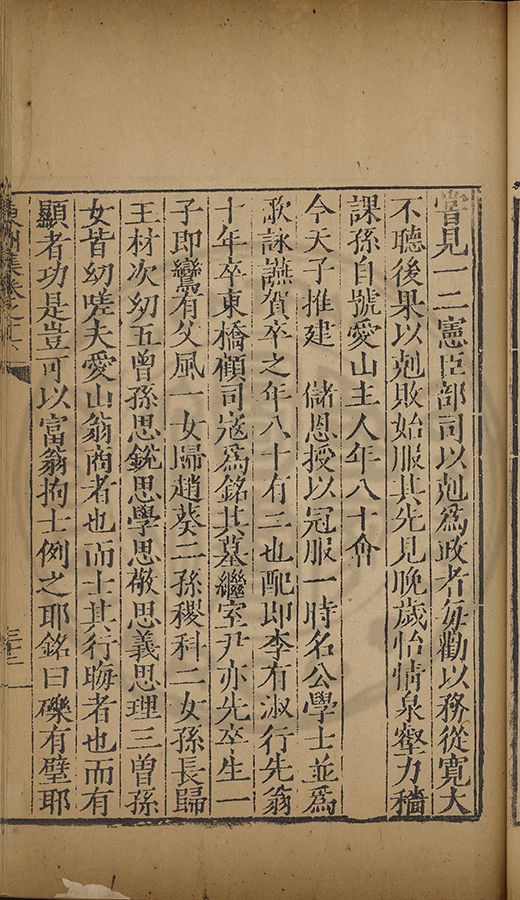 嘗見一二憲臣部司以剋爲政者每勸以務從寬大
不聽後果以剋敗始服其先見晚歲怡情泉壑力穡
課孫自號愛山主人年八十會
今天子推建　儲恩授以冠服一時名公學士並爲
歌詠讌賀卒之年八十有二也配即李有淑行先翁
十年卒東橋顧司寇爲銘其墓繼室尹亦先卒生一
子即鸞有父風一女歸趙葵二孫稷科二女孫長歸
王材次幼五曾孫思銳思學思敬思義思理三曾孫
女皆幼嗟夫愛山翁商者也而士其行晦者也而有
顯者功是豈可以富翁拘士例之耶銘曰礫有璧耶
集卷之
三十三